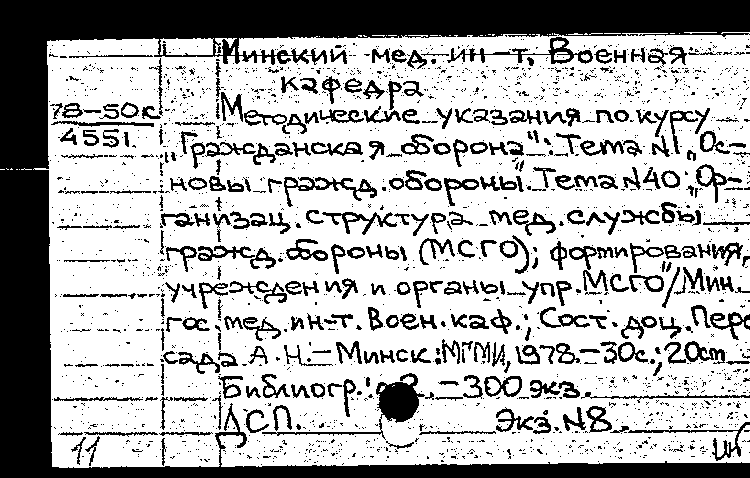 Минский мед. ин-т. Военная
кафедра
78-50к
4551
Методические указания по курсу
„Гражданская оборона": Тема N1 „Ос-
новы гражд. обороны". Тема N40 „Ор-
ганизац. структура мед. службы
гражд. обороны (МСГО); формирования,
учреждения и органы упр. МСГО"/Мин.
гос. мед. ин-т. Воен. каф.; Сост. доц. Перс
сада А.Н.-Минск: МГМИ, 1978.-30с.; 20см
Библиогр.: -300 экз.
ДСП. Экз. N8.
11